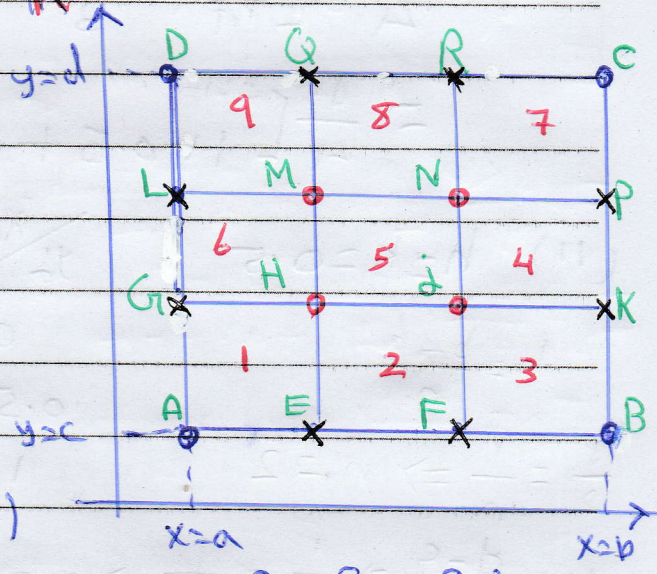 D Q R C
y=d
9 8 7
L M N P
6 5 4
G H j K
1 2 3
A E F B
y=c
)
x=a x=b